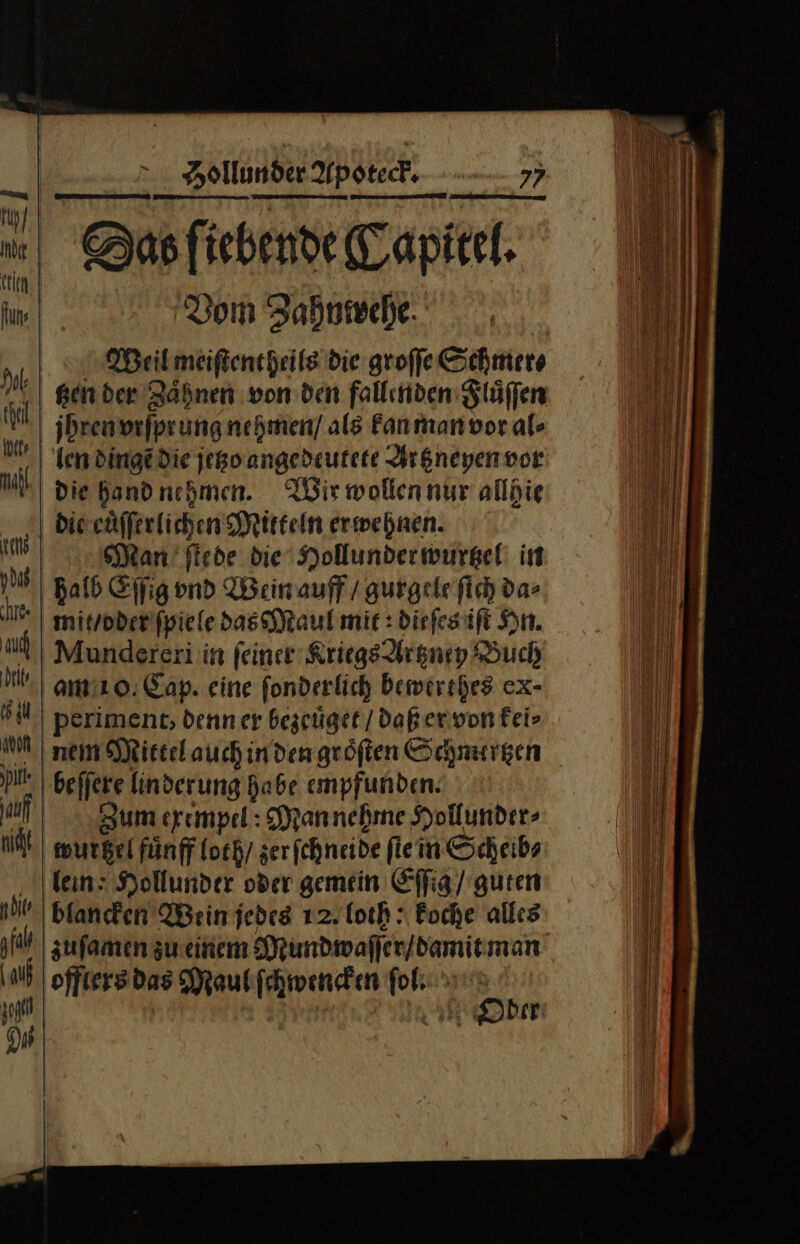 Hollunder Apoteck. 77
Das ſiebende Capitel.
Vom Zahnwehe.
Weil meiſtentheils die groſſe Schmer⸗
tzen der Zaͤhnen von den fallenden Fluͤſſen
jhren vrſprung nehmen/ als kan man vor al⸗
len dingẽ die jetzo angedeutete Artzneyen vor
die hand nehmen. Wir wollen nur allhie
die euͤſſerlichen Mitteln erwehnen.
Man ſiede die Hollunderwurtzel in
halb Eſſig vnd Wein auff / gurgele ſich da⸗
mit/oder ſpiele das Maul mit : dieſes iſt Hn.
Mundereri in ſeiner KriegsArtzney Buch
am 10. Cap. eine ſonderlich bewerthes ex-
periment, denn er bezeuͤget / daß er von kei⸗
nem Mittel auch in den groͤſten Schmertzen
beſſere linderung habe empfunden.
Zum exempel : Man nehme Hollunder⸗
wurtzel fuͤnff loth/ zerſchneide ſie in Scheib⸗
lein: Hollunder oder gemein Eſſig/ guten
blancken Wein jedes 12. loth : koche alles
zuſamen zu einem Mundwaſſer/damit man
offters das Maul ſchwencken ſol.
Oder